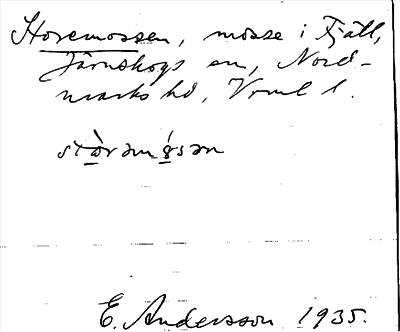 Storemossen, mosse i Fjäll,
Järnskogs sn, Nord-
marks hd, Vrml l.
stòrəmósən
E. Andersson 1935.